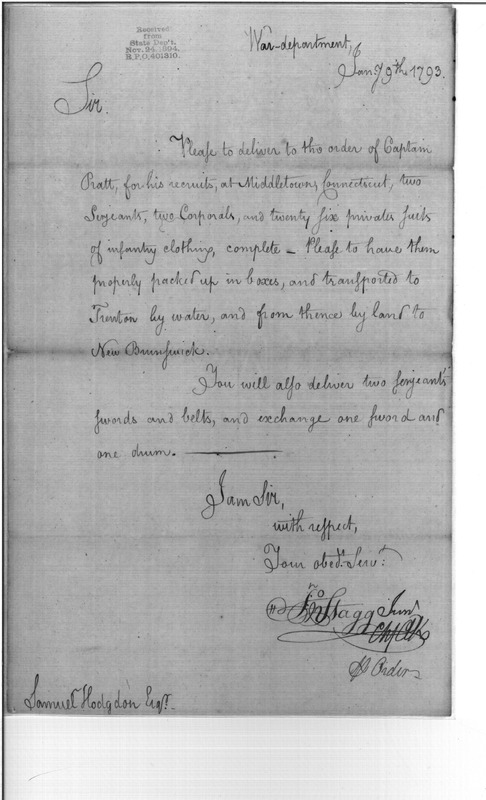 Received
from
State Dep't.
Nov. 24, 1894.
R.P.O. 401310.
War-department,
Jany 9th 1793.
Sir.
Please to deliver to the order of Captain
Pratt, for his recruits, at Middletown, Connecticut, two
Serjeants, two Corporals, and twenty six privates suits
of infantry clothing, complete — Please to have them
properly packed up in boxes, and transported to
Trenton by water, and from thence by land to
New Brunswick.
You will also deliver two serjeants
swords and belts, and exchange one sword and
one drum.
I am Sir,
with respect,
Your obedt. Servt.
Jno Stagg Junr
Chf Clk
Order
Samuel Hodgdon Esqr.